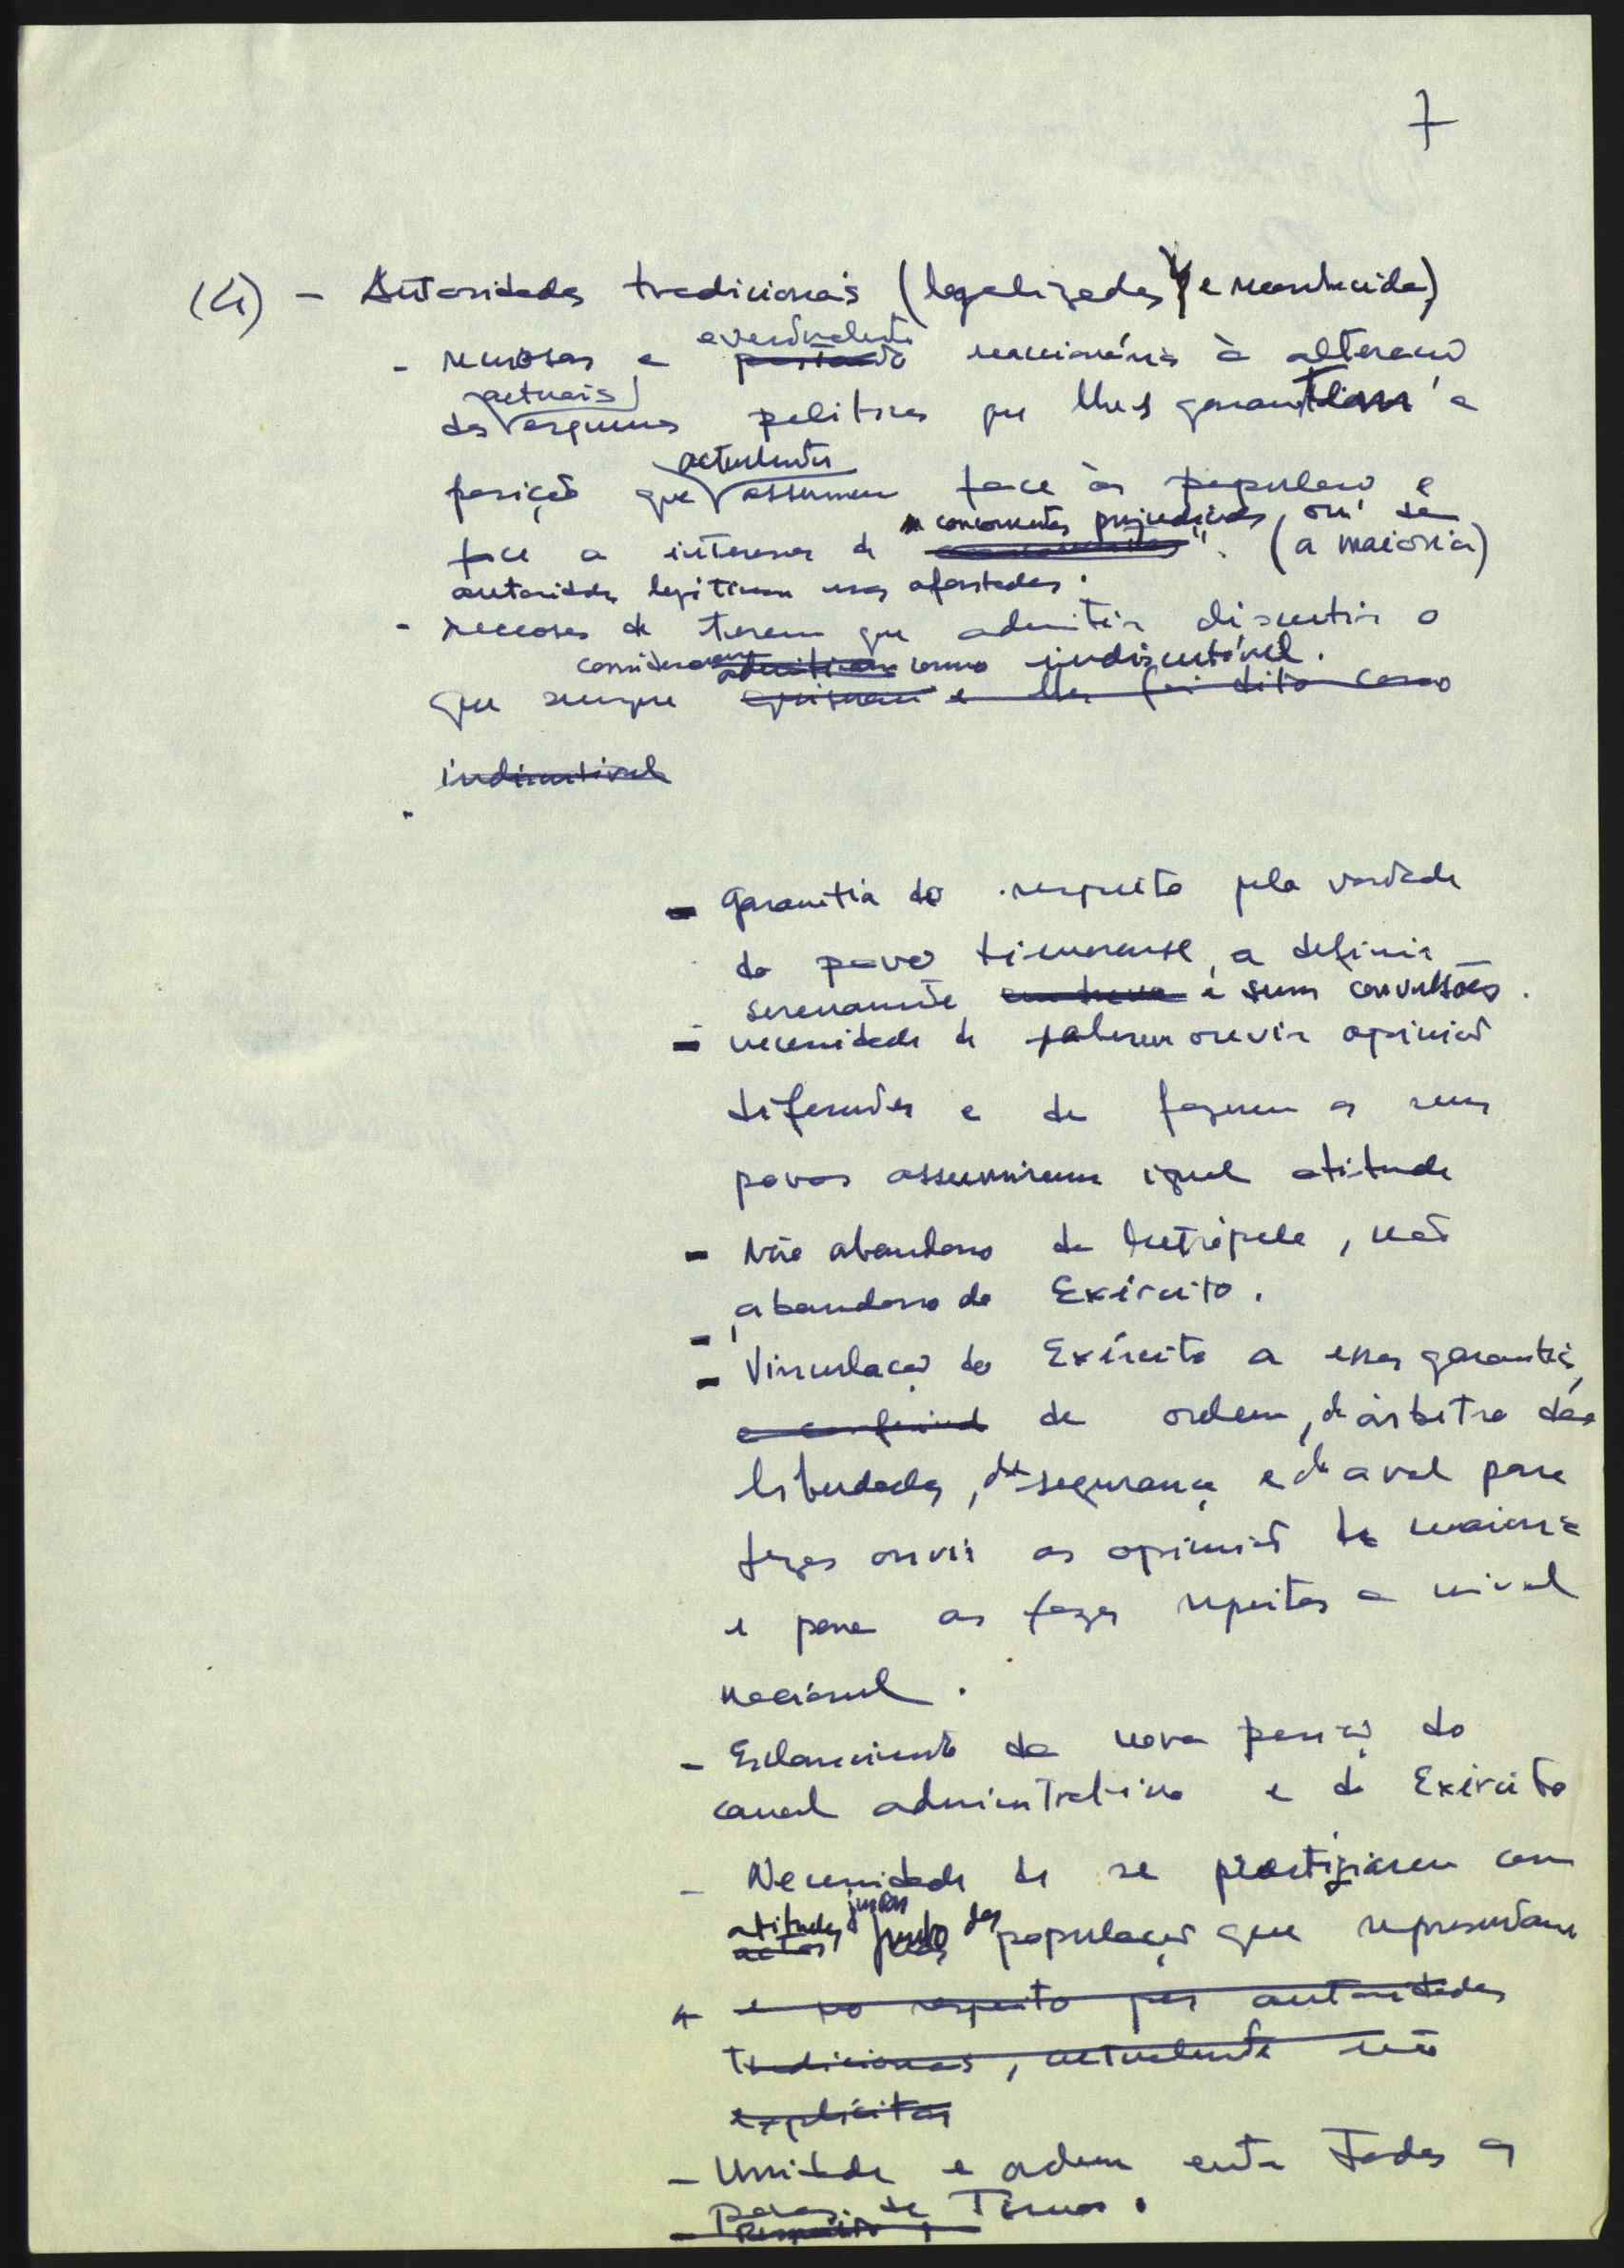 7
(4) - Autoridades tradicionais (legalizadas e reconhecidas)
- receosas e eventualmente reaccionárias à alteração
dos actuais esquemas politicos que lhes garantiam a
posição que actualmente assumem face às populações e
face a interesses de concorrentes prejudicados, ou de (a maioria)
autoridades legítimas mas afastadas.
- receosas de terem que admitir discutir o
que sempre consideraram admitiram como indiscutível.
e lhes foi dito como
indiscutível
- Garantia do respeito pela vontade
do povo timorense, a definir
serenamente e sem convulsões.
- necessidade de saberem ouvir opiniões
diferentes e de fazerem os seus
povos assumirem igual atitude
- Não abandono da Metrópole, não
abandono do Exército.
- Vinculação do Exército a essas garantias,
de ordem, de árbitro das
liberdades, de segurança e de aval para
fazer ouvir as opiniões da maioria
e para as fazer respeitar a nível
nacional.
- Esclarecimento da nova posição do
canal administrativo e do Exército
- Necessidade de se prestigiarem com
atitudes actos justas junto das populações que representam
e no respeito por autoridades
tradicionais, actualmente não
explícitas
- Unidade e ordem entre todos os
Povos de Timor.